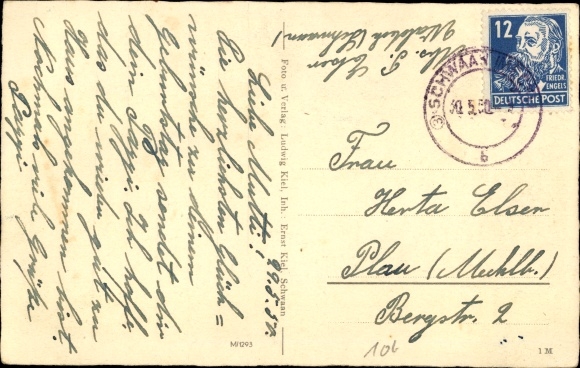 Liebe Mutti! 29.5.52.
Die herzlichsten Glück=
wünsche zu deinem
Geburtstag sendet dir
dein Pappi. Ich hoffe
das du wieder gut zu
Haus angekommen bist.
Nochmals viele Grüße
Pappi.
Foto u. Verlag: Ludwig Kiel, Inh.: Ernst Kiel, Schwaan
M/1293
Abs. P. Elser
Waldeck (Schwaan)
12
FRIEDR.
ENGELS
DEUTSCHE POST
SCHWAAN
30.5.52
b
Frau
Herta Elser
Plau (Mecklb.)
Bergstr. 2
10b
1 M